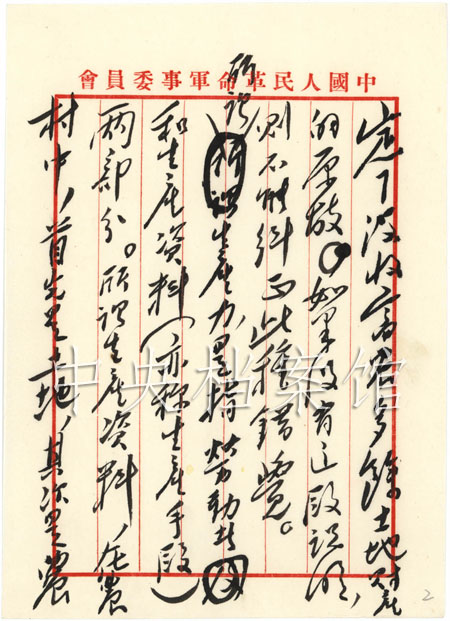 中國人民革命軍事委員會
定了没收富農多餘土地財產
的原故。如果没有这段説明，
则不能纠正此種錯覺。
所謂生産力，是指勞動者
和生産资料（亦称生産手段）
两部分。所謂生産资料，在農
村中，首先是土地，其次是農
中央档案馆
2